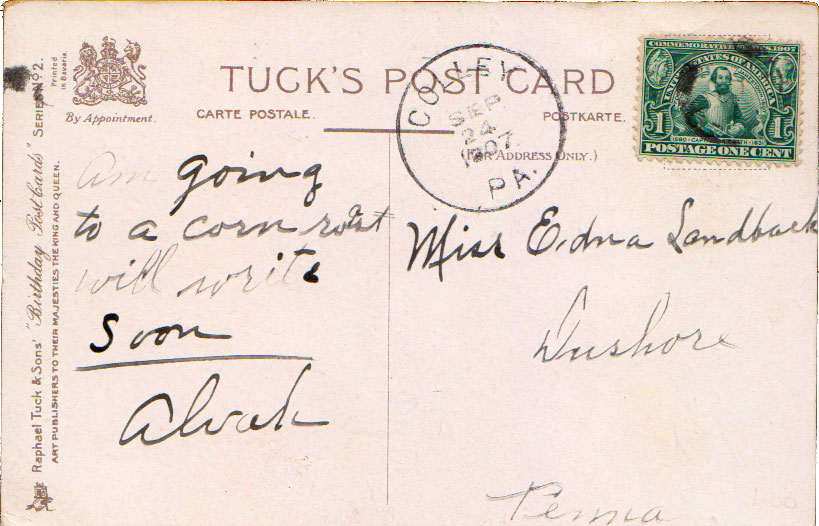 Raphael Tuck & Sons' "Birthday Post Cards" SERIES No 2.
ART PUBLISHERS TO THEIR MAJESTIES THE KING AND QUEEN.
Printed in Bavaria
By Appointment.
TUCK'S POST CARD
CARTE POSTALE.
POSTKARTE.
(FOR ADDRESS ONLY.)
COLLEY
SEP
24
1907
PA.
COMMEMORATIVE SERIES, 1907
UNITED STATES OF AMERICA
1 1
POSTAGE ONE CENT
Am going
to a corn roast
will write
Soon
Alvah
Miss Edna Landback
Dushore
Penna